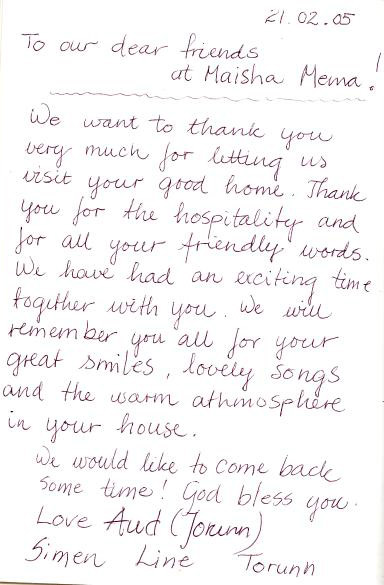 21.02.05
To our dear friends
at Maisha Mema!
We want to thank you
very much for letting us
visit your good home. Thank
you for the hospitality and
for all your friendly words.
We have had an exciting time
together with you. We will
remember you all for your
great smiles, lovely songs
and the warm athmosphere
in your house.
We would like to come back
some time! God bless you.
Love Aud (Jorunn)
Simen Line Torunn